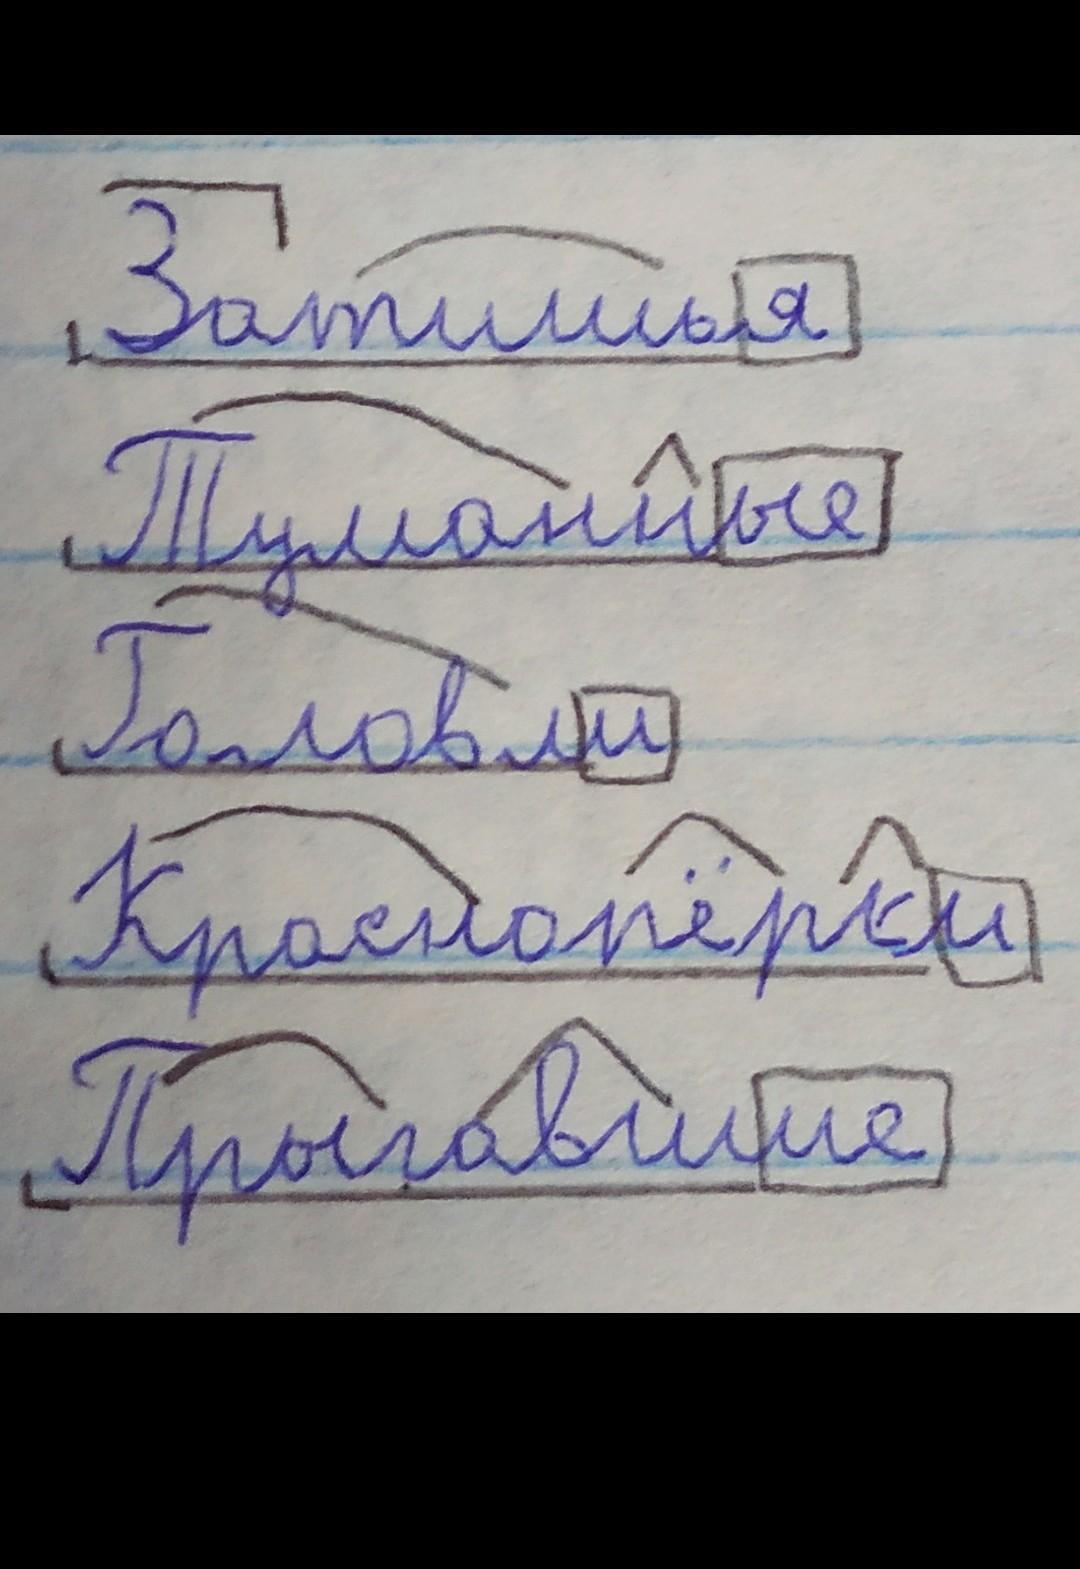 Затишья
Туманные
Головли
Краснопёрки
Прыгавшие